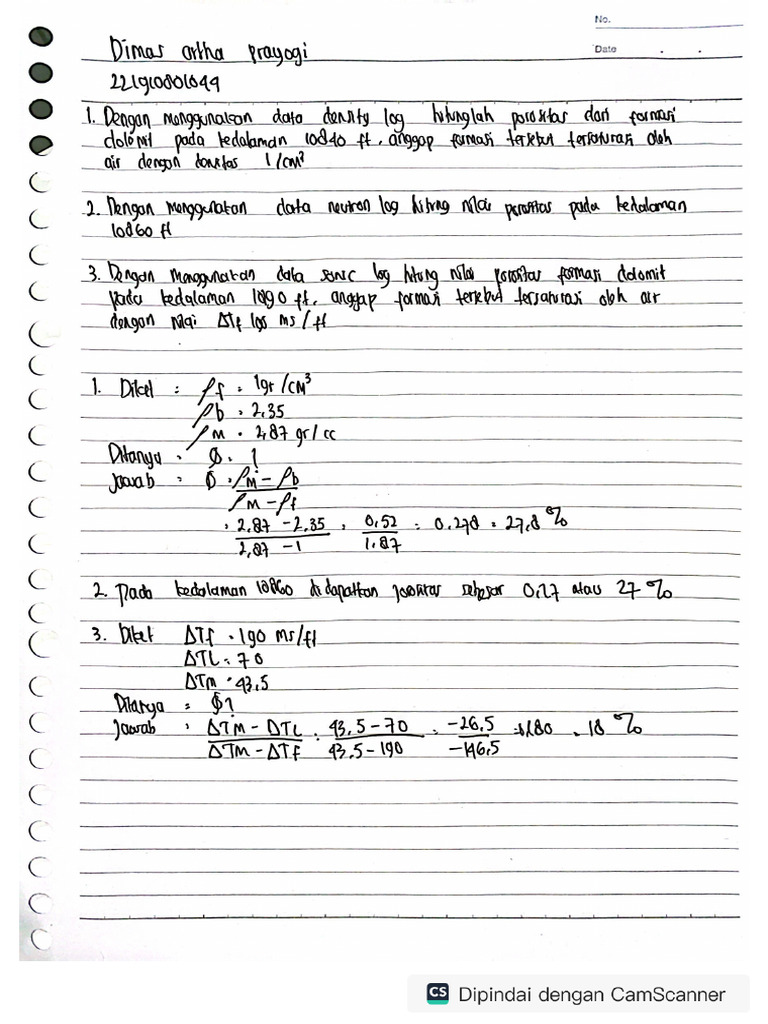 No.
Date . .
Dimas artha prayogi
221910801049
1. Dengan menggunakan data density log hitunglah porositas dari formasi
dolomit pada kedalaman 10840 ft, anggap formasi tersebut tersaturasi oleh
air dengan densitas 1/cm³
2. Dengan menggunakan data neutron log hitung nilai porositas pada kedalaman
10860 ft
3. Dengan menggunakan data sonic log hitung nilai porositas formasi dolomit
pada kedalaman 1090 ft, anggap formasi tersebut tersaturasi oleh air
dengan nilai ΔTf ms/ft
1. Diket : ρf = 1gr/cm³
ρb = 2.35
ρm = 2,87 gr/cc
Ditanya = Ø. ?
Jawab : Ø = ρm - ρb
ρm - ρf
= 2,87 - 2.35 = 0,52 = 0.278 = 27,8 %
2,87 - 1 1.87
2. Pada kedalaman 10860 didapatkan porositas sebesar 0,27 atau 27 %
3. Diket ΔTf = 190 ms/ft
ΔTL = 70
ΔTm = 43,5
Ditanya = Ø?
Jawab : ΔTM - ΔTL = 43,5 - 70 = -26,5 = 0,180 = 18 %
ΔTM - ΔTf 43,5 - 190 -146,5
CS Dipindai dengan CamScanner